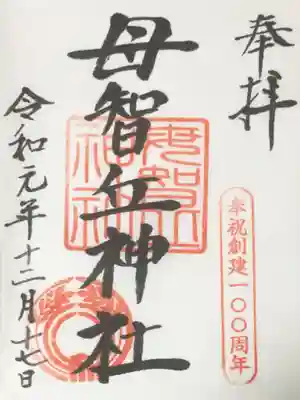 奉拝
奉祝創建一〇〇周年
母智丘神社
令和元年十二月十七日